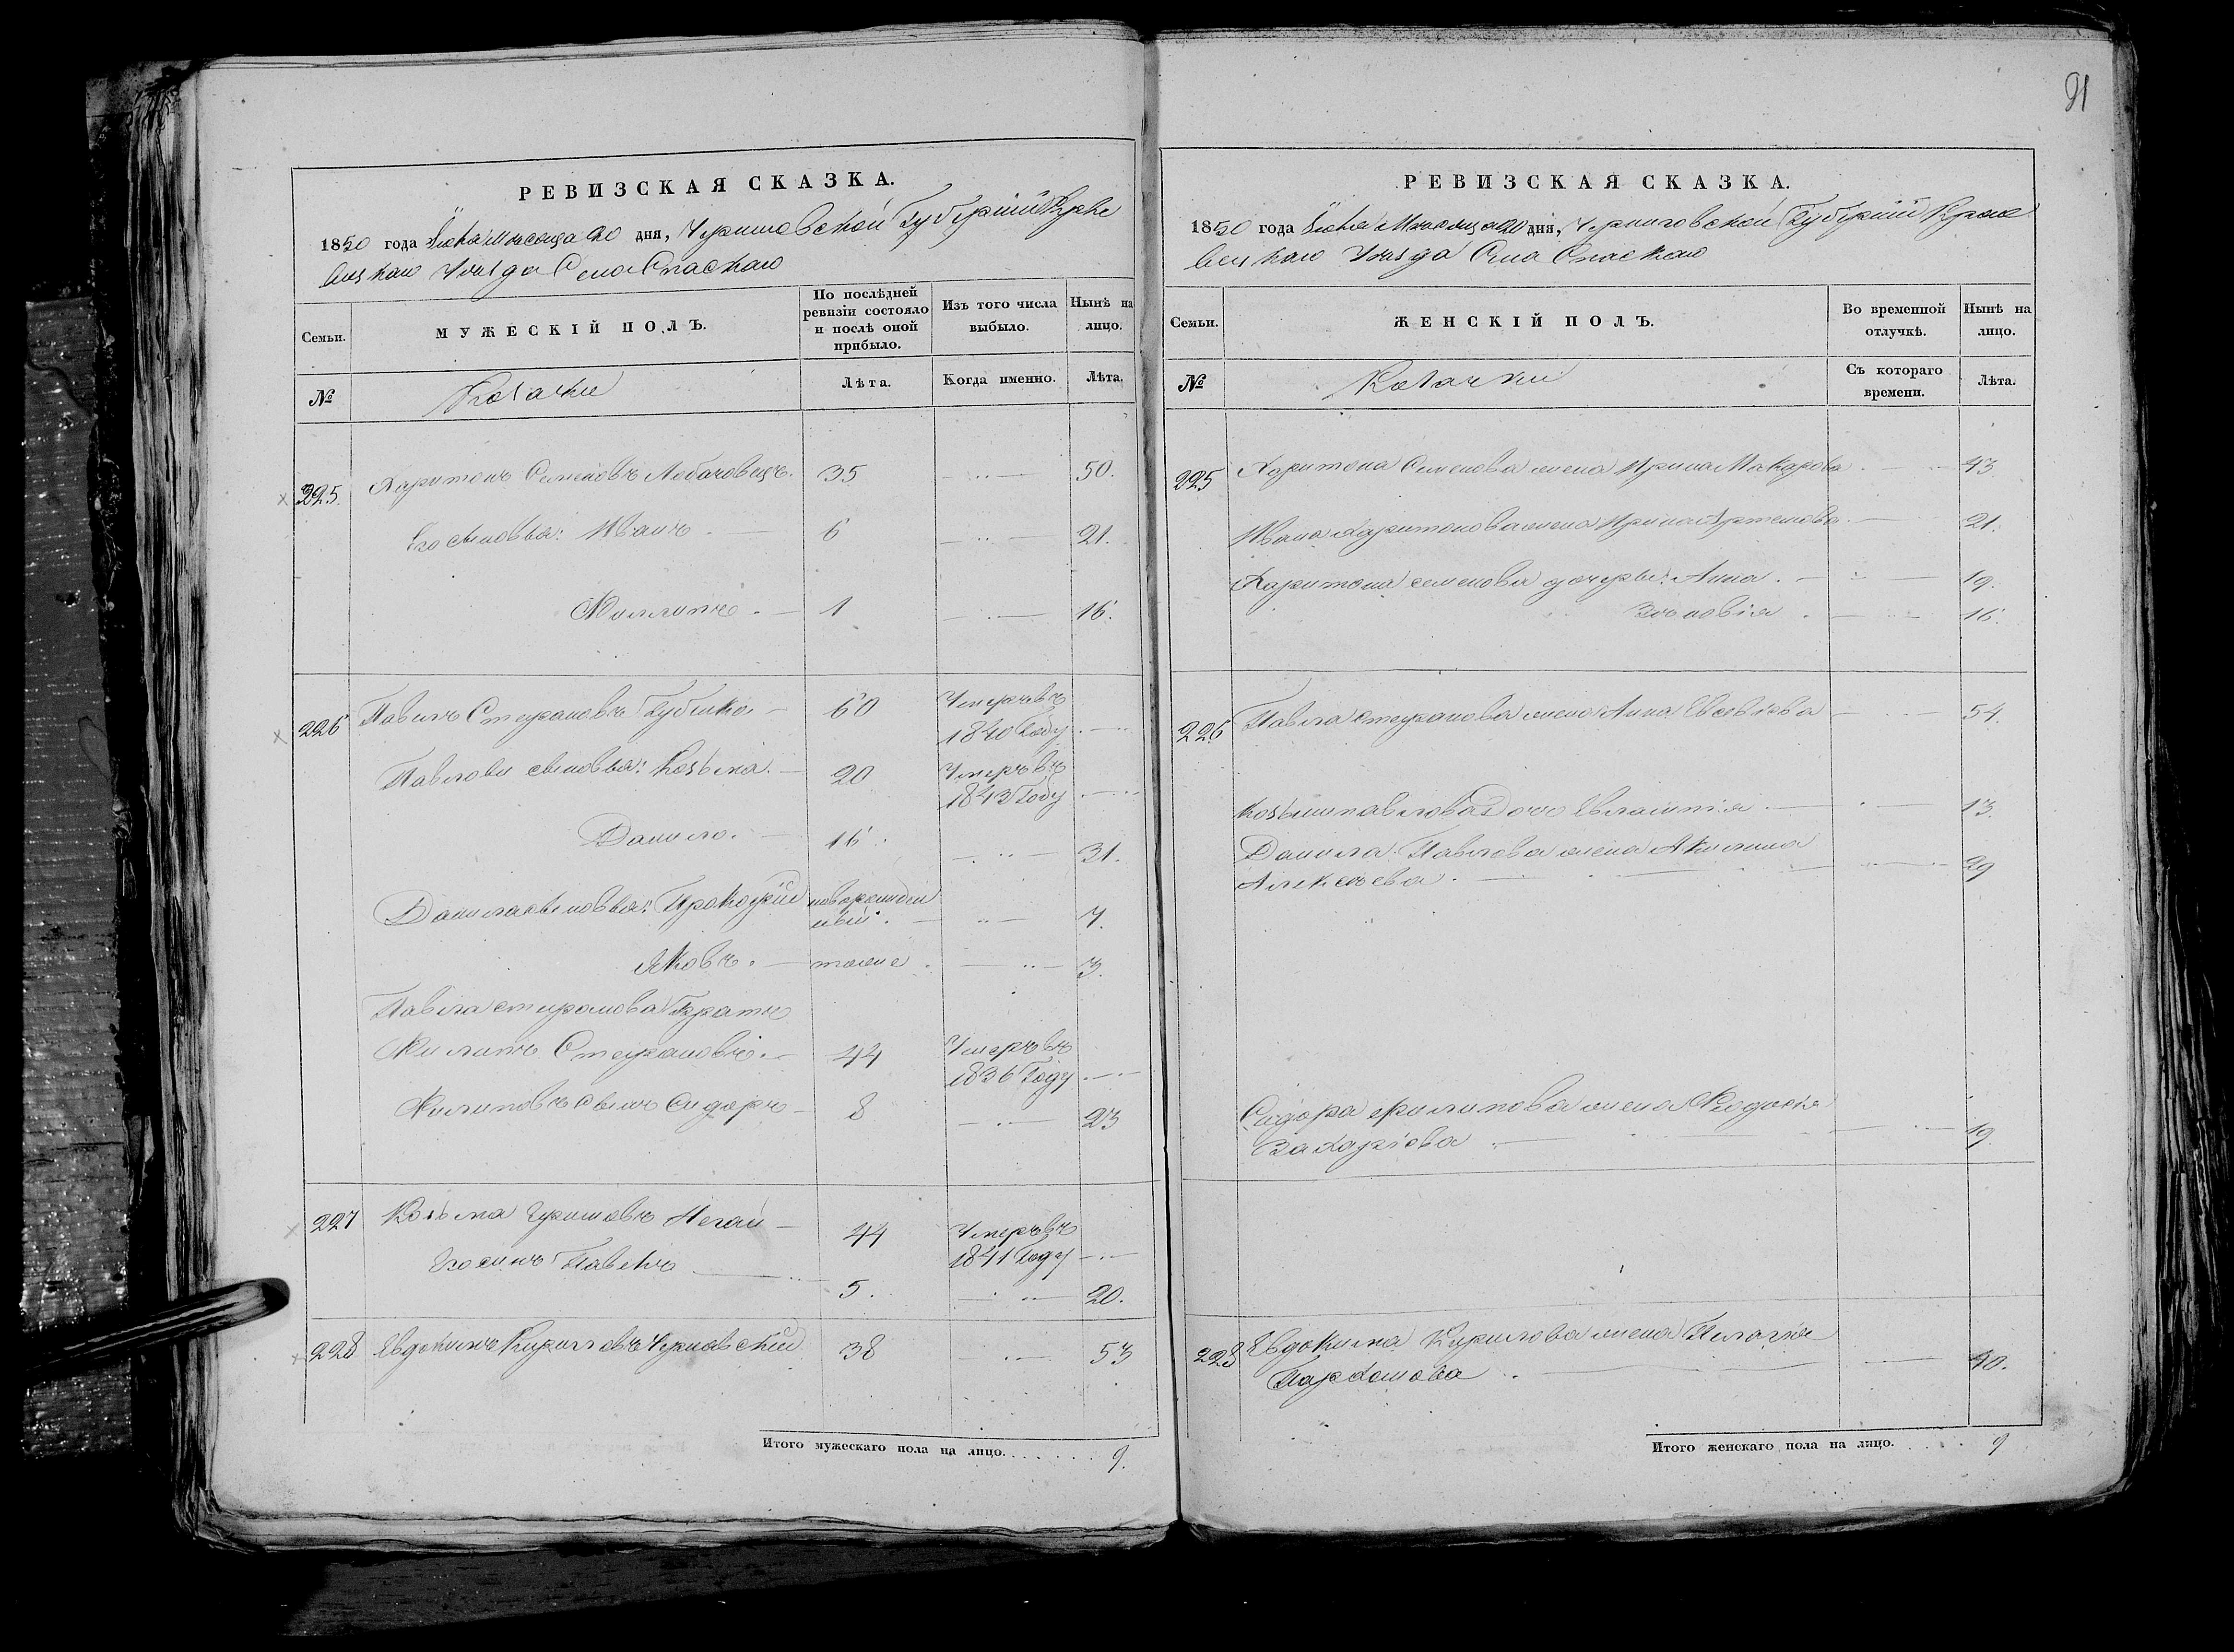 91
РЕВИЗСКАЯ СКАЗКА.
1850 года Іюня Месяца 20 дня, Черниговской Губерніи Кроле
вецкаго Уезда Села Спаскаго
Семьи.
МУЖЕСКІЙ ПОЛЪ.
По послѣдней ревизіи состояло и послѣ оной прибыло.
Изъ того числа выбыло.
Нынѣ на лицо.
№
Козачки
Лѣта.
Когда именно.
Лѣта.
225. Харитонъ Семеновъ 35 50.
Его сыновья: Иванъ 6 21.
Филипъ 1 16.
226 Павелъ Стефановъ Губенко 60 Умеръ въ 1840 Году
Павловы сыновья: Козьма 20 Умеръ въ 1843 Году
Данило. 16. 31.
Данила сыновья: Прокофій новорожден
ный. 7.
Яковъ. тоже 3.
Павла стефанова Братъ
Филипъ Стефановъ. 44 Умеръ въ 1836 Году
Филиповъ Сынъ Сидоръ 8 23
227 Козьма 44 Умеръ въ 1841 Году
Его сынъ Павелъ 5. 20.
228 Евдокимъ Кириловъ Чернявскій 38 53
Итого мужескаго пола на лицо. 9.
РЕВИЗСКАЯ СКАЗКА.
1850 года Іюня Месяца 20 дня, Черниговской Губерніи Кроле
вецкаго Уезда Села Спаскаго
Семьи.
ЖЕНСКІЙ ПОЛЪ.
Во временной отлучкѣ.
Нынѣ на лицо.
№
Козачки
Съ котораго времени.
Лѣта.
225 Харитона Семенова жена Ирина Макарова 43
Ивана Харитонова жена Ирина Артемова 21.
Харитона семенова дочери: Анна. 19.
Зѣновія 16.
226 Павла стефанова жена Анна Евсевіева 54.
Козьмы павлова Дочь Евлампія 13.
Данила Павлова жена Акилина
Алексѣева. 29
Сидора филипова жена Федосія
Захаріева 19
228 Евдокима Кирилова жена Пелагѣя
Пархомова 40.
Итого женскаго пола на лицо. 9